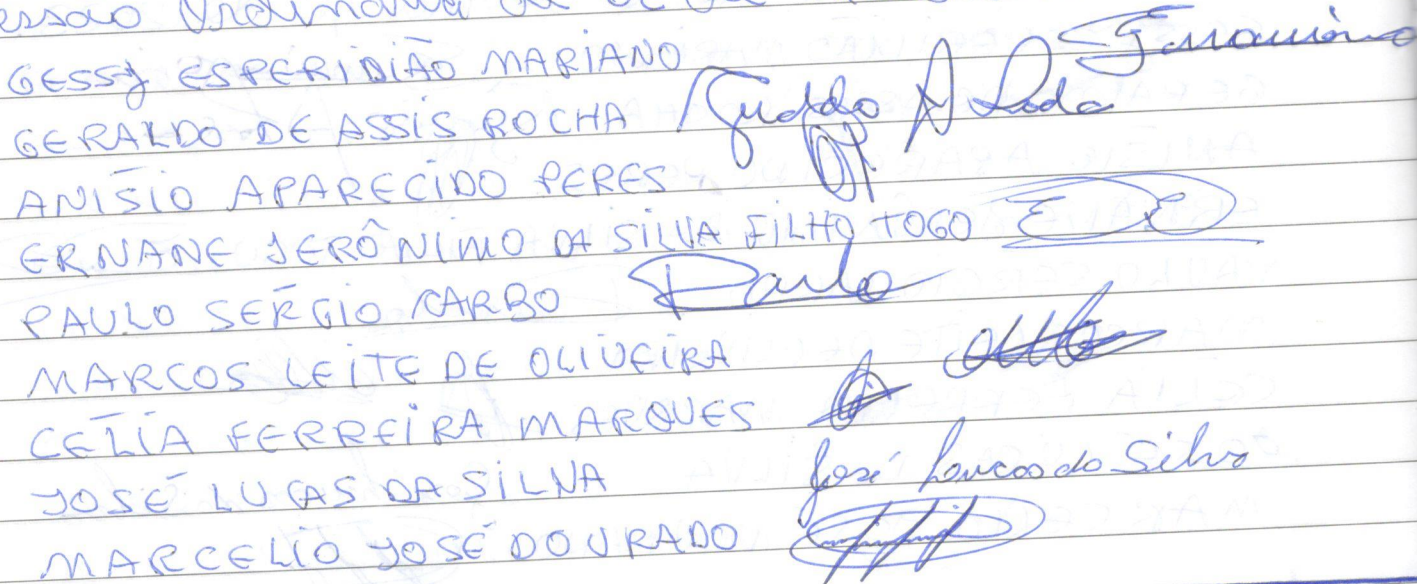 Ordinária de
GESSY ESPERIDIÃO MARIANO
GERALDO DE ASSIS ROCHA
ANÍSIO APARECIDO PERES
ERNANE JERÔNIMO DA SILVA FILHO TOGO
PAULO SÉRGIO CARBO Paulo
MARCOS LEITE DE OLIVEIRA
CÉLIA FERREIRA MARQUES
JOSÉ LUCAS DA SILVA José Lucas da Silva
MARCELIO JOSÉ DOURADO